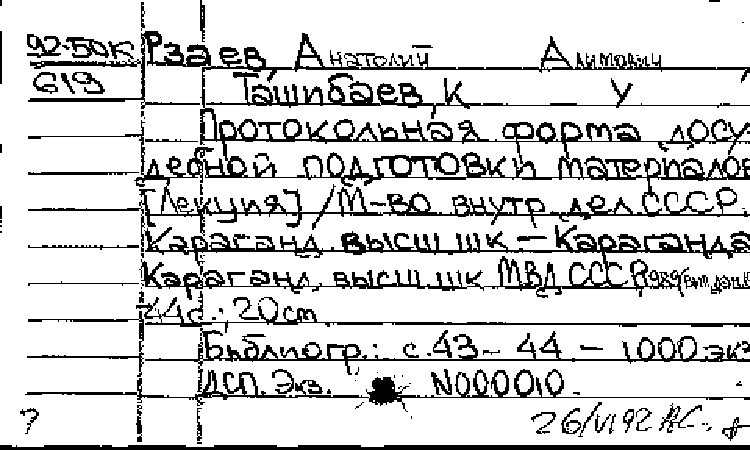 92-50К Рзаев Анатолий Алимович
619 Ташибаев, К У
Протокольная форма досу
дебной подготовки материалов
[Лекция] / М-во внутр. дел СССР.
Караганд. высш. шк – Караганда
Караганд. высш. шк МВД СССР, 1989
44 с.; 20 cm
Библиогр.: с. 43 – 44. – 1000 экз
ДСП. Экз. N000010.
? 26/VI 92 АС.